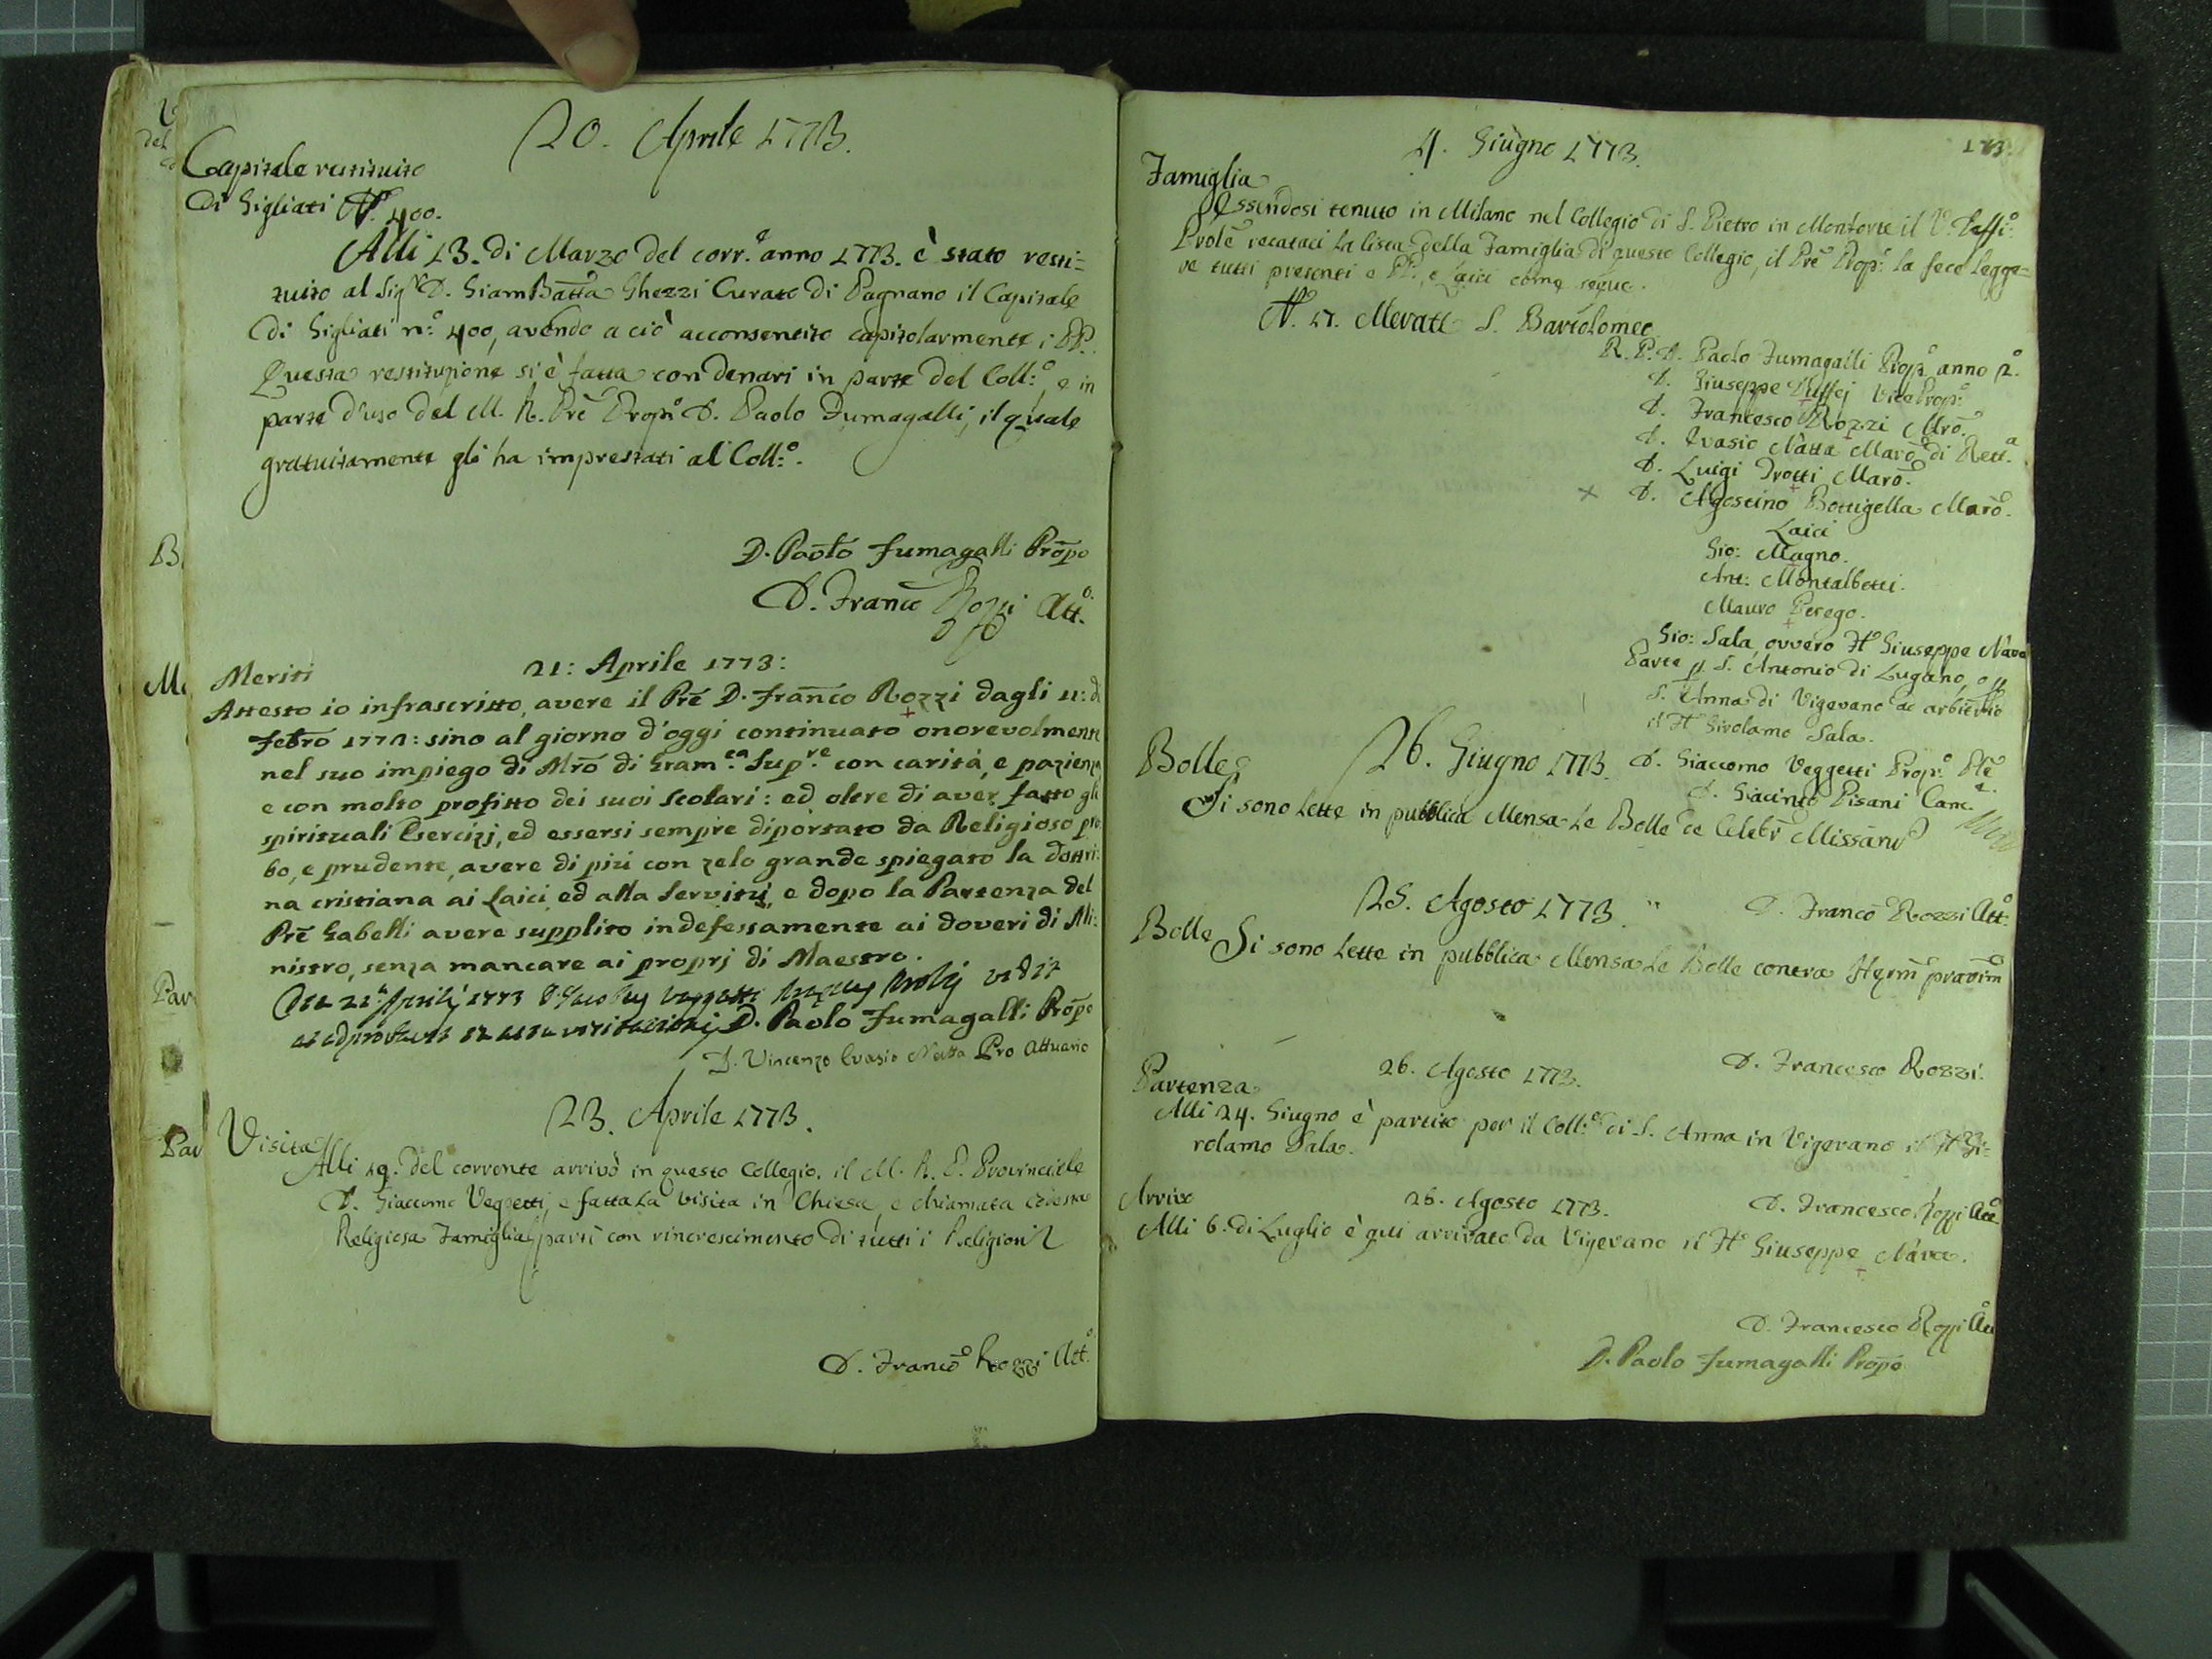 20. Aprile 1773.
Capitale restituito
di Gigliati N.º 400.
Alli 13. di Marzo del corr.e anno 1773. è stato resti=
tuito al Sig.r D. GiamBatta Ghezzi Curato di Pagnano il Capitale
di Gigliati n.º 400, avendo a ciò acconsentito capitolarmente i PP.
Questa restituzione si è fatta con denari in parte del Coll.º, e in
parte d'uso del M. R. Prē Prop.º D. Paolo Fumagalli, il quale
gratuitamente gli ha imprestati al Coll.º.
D. Paolo Fumagalli Prōpo
D. Franco Rozzi Att.º
Meriti 21: Aprile 1773:
Attesto io infrascritto, avere il Prē D. Franco Rozzi dagli 11: di
Febro 177 : sino al giorno d'oggi continuato onorevolmente
nel suo impiego di Mrō di Gram.ca Sup.re con carità, e pazienza,
e con molto profitto dei suoi Scolari: ed oltre di aver fatto gli
spirituali Esercizj, ed essersi sempre diportato da Religioso pro
bo, e prudente, avere di più con zelo grande spiegato la dottri:
na cristiana ai Laici, ed alla Servitù, e dopo la Partenza del
Prē Gabelli avere supplito indefessamente ai doveri di Mi:
nistro, senza mancare ai proprj di Maestro.
Die 21 Aprilij 1773 D. Jacobus Veggetti vidit
ac adprobavit in actu visitationis D. Paolo Fumagalli Prōpo
D. Vincenzo Evasio Natta Pro Attuario
23. Aprile 1773.
Visita
Alli 19. del corrente arrivò in questo Collegio, il M. R. P. Provinciale
D. Giacomo Veggetti, e fatta la visita in Chiesa, e chiamata codesta
Religiosa Famiglia partì con rincrescimento di tutti i Religiosi
D. Franco Rozzi Att.º
4. Giugno 1773.
Famiglia
Essendosi tenuto in Milano nel Collegio di S. Pietro in Monforte il V. Deffi.º
Prōle recataci la lista della Famiglia di questo Collegio, il Prē Prop.º la fece legge=
re tutti presenti e PP., e Laici come segue.
N. 17. Merate S. Bartolomeo
R. P. D. Paolo Fumagalli Prop.º anno 2.º
D. Giuseppe Viceprop.º
D. Francesco Rozzi Mrō.
D. Evasio Natta Marō di Rett.a
D. Luigi Trotti Marō.
× D. Agostino Bottigella Marō.
Laici
Gio: Magno.
Ant: Montalbetti.
Mauro Perego.
Gio: Sala, ovvero Fr. Giuseppe Nava
Parte p. S. Antonio di Lugano, o p.
S. Anna di Vigevano ad arbitrio
il Fr. Girolamo Sala.
D. Giacomo Veggetti Prop.º Plē
D. Giacinto Pisani Canc.e
26. Giugno 1773.
Bolle
Si sono lette in pubblica Mensa le Bolle de Celebr Missarum
D. Franco Rozzi Att.º
25. Agosto 1773.
Bolle Si sono lette in pubblica Mensa le Bolle contra pravim
D. Francesco Rozzi.
26. Agosto 1773.
Partenza
Alli 24. Giugno è partito per il Coll.º di S. Anna in Vigevano il Fr. Gi=
rolamo Sala.
D. Francesco Rozzi Att.º
Arrivo 26. Agosto 1773.
Alli 6. di Luglio è qui arrivato da Vigevano il Fr. Giuseppe Nava.
D. Francesco Rozzi Att.º
D. Paolo Fumagalli Prōpo